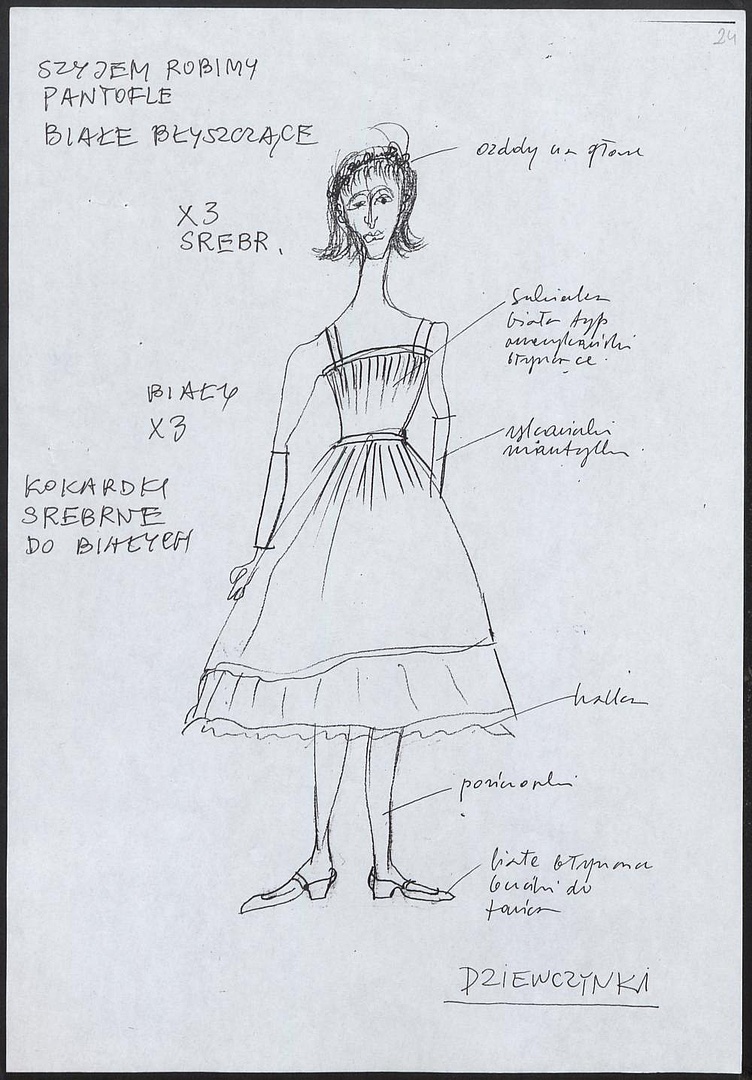 24
SZYJEM ROBIMY
PANTOFLE
BIAŁE BŁYSZCZĄCE
ozdoby na głowę
X3
SREBR.
sukienka
biała typ
amerykański
błyszczące
BIAŁY
X3
rękawiczki
KOKARDKI
SREBRNE
DO BIAŁYCH
halka
pończoszki
białe
buciki do
tańca
DZIEWCZYNKI